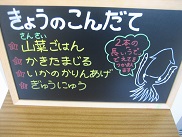 きょうのこんだて
さんさい
山菜ごはん
かきたまじる
いかのかりんあげ
ぎゅうにゅう
2本の
長いうで